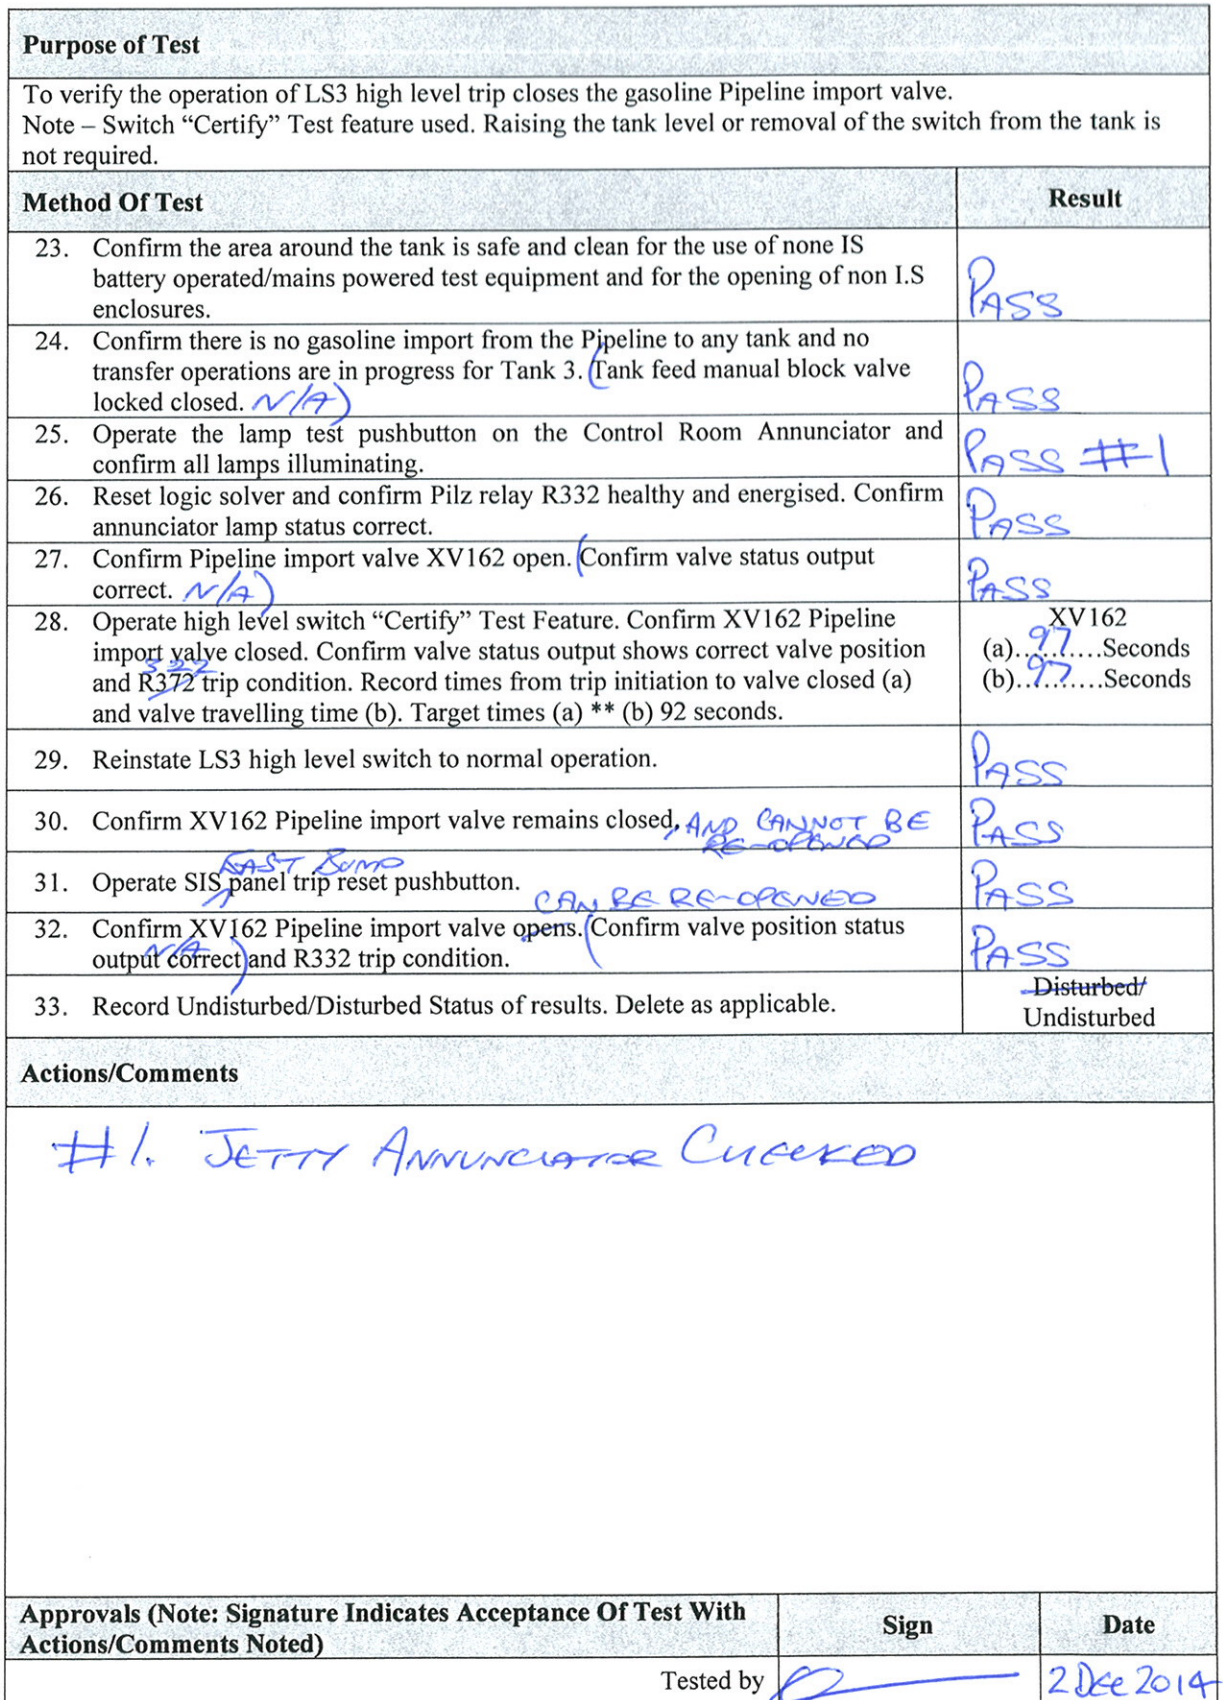 Purpose of Test
To verify the operation of LS3 high level trip closes the gasoline Pipeline import valve.
Note – Switch “Certify” Test feature used. Raising the tank level or removal of the switch from the tank is
not required.
Method Of Test
Result
23. Confirm the area around the tank is safe and clean for the use of none IS
battery operated/mains powered test equipment and for the opening of non I.S
enclosures.
PASS
24. Confirm there is no gasoline import from the Pipeline to any tank and no
transfer operations are in progress for Tank 3. (Tank feed manual block valve
locked closed. N/A)
PASS
25. Operate the lamp test pushbutton on the Control Room Annunciator and
confirm all lamps illuminating.
PASS #1
26. Reset logic solver and confirm Pilz relay R332 healthy and energised. Confirm
annunciator lamp status correct.
PASS
27. Confirm Pipeline import valve XV162 open. (Confirm valve status output
correct. N/A)
PASS
28. Operate high level switch “Certify” Test Feature. Confirm XV162 Pipeline
import valve closed. Confirm valve status output shows correct valve position
332
and R372 trip condition. Record times from trip initiation to valve closed (a)
and valve travelling time (b). Target times (a) ** (b) 92 seconds.
XV162
(a)...97...Seconds
(b)...97...Seconds
29. Reinstate LS3 high level switch to normal operation.
PASS
30. Confirm XV162 Pipeline import valve remains closed, AND CANNOT BE
RE-OPENED
PASS
EAST BUND
31. Operate SIS panel trip reset pushbutton.
PASS
CAN BE RE-OPENED
32. Confirm XV162 Pipeline import valve opens. (Confirm valve position status
N/A
output correct) and R332 trip condition.
PASS
33. Record Undisturbed/Disturbed Status of results. Delete as applicable.
Disturbed/
Undisturbed
Actions/Comments
#1. JETTY ANNUNCIATOR CHECKED
Approvals (Note: Signature Indicates Acceptance Of Test With
Actions/Comments Noted)
Sign
Date
Tested by
2 DEC 2014